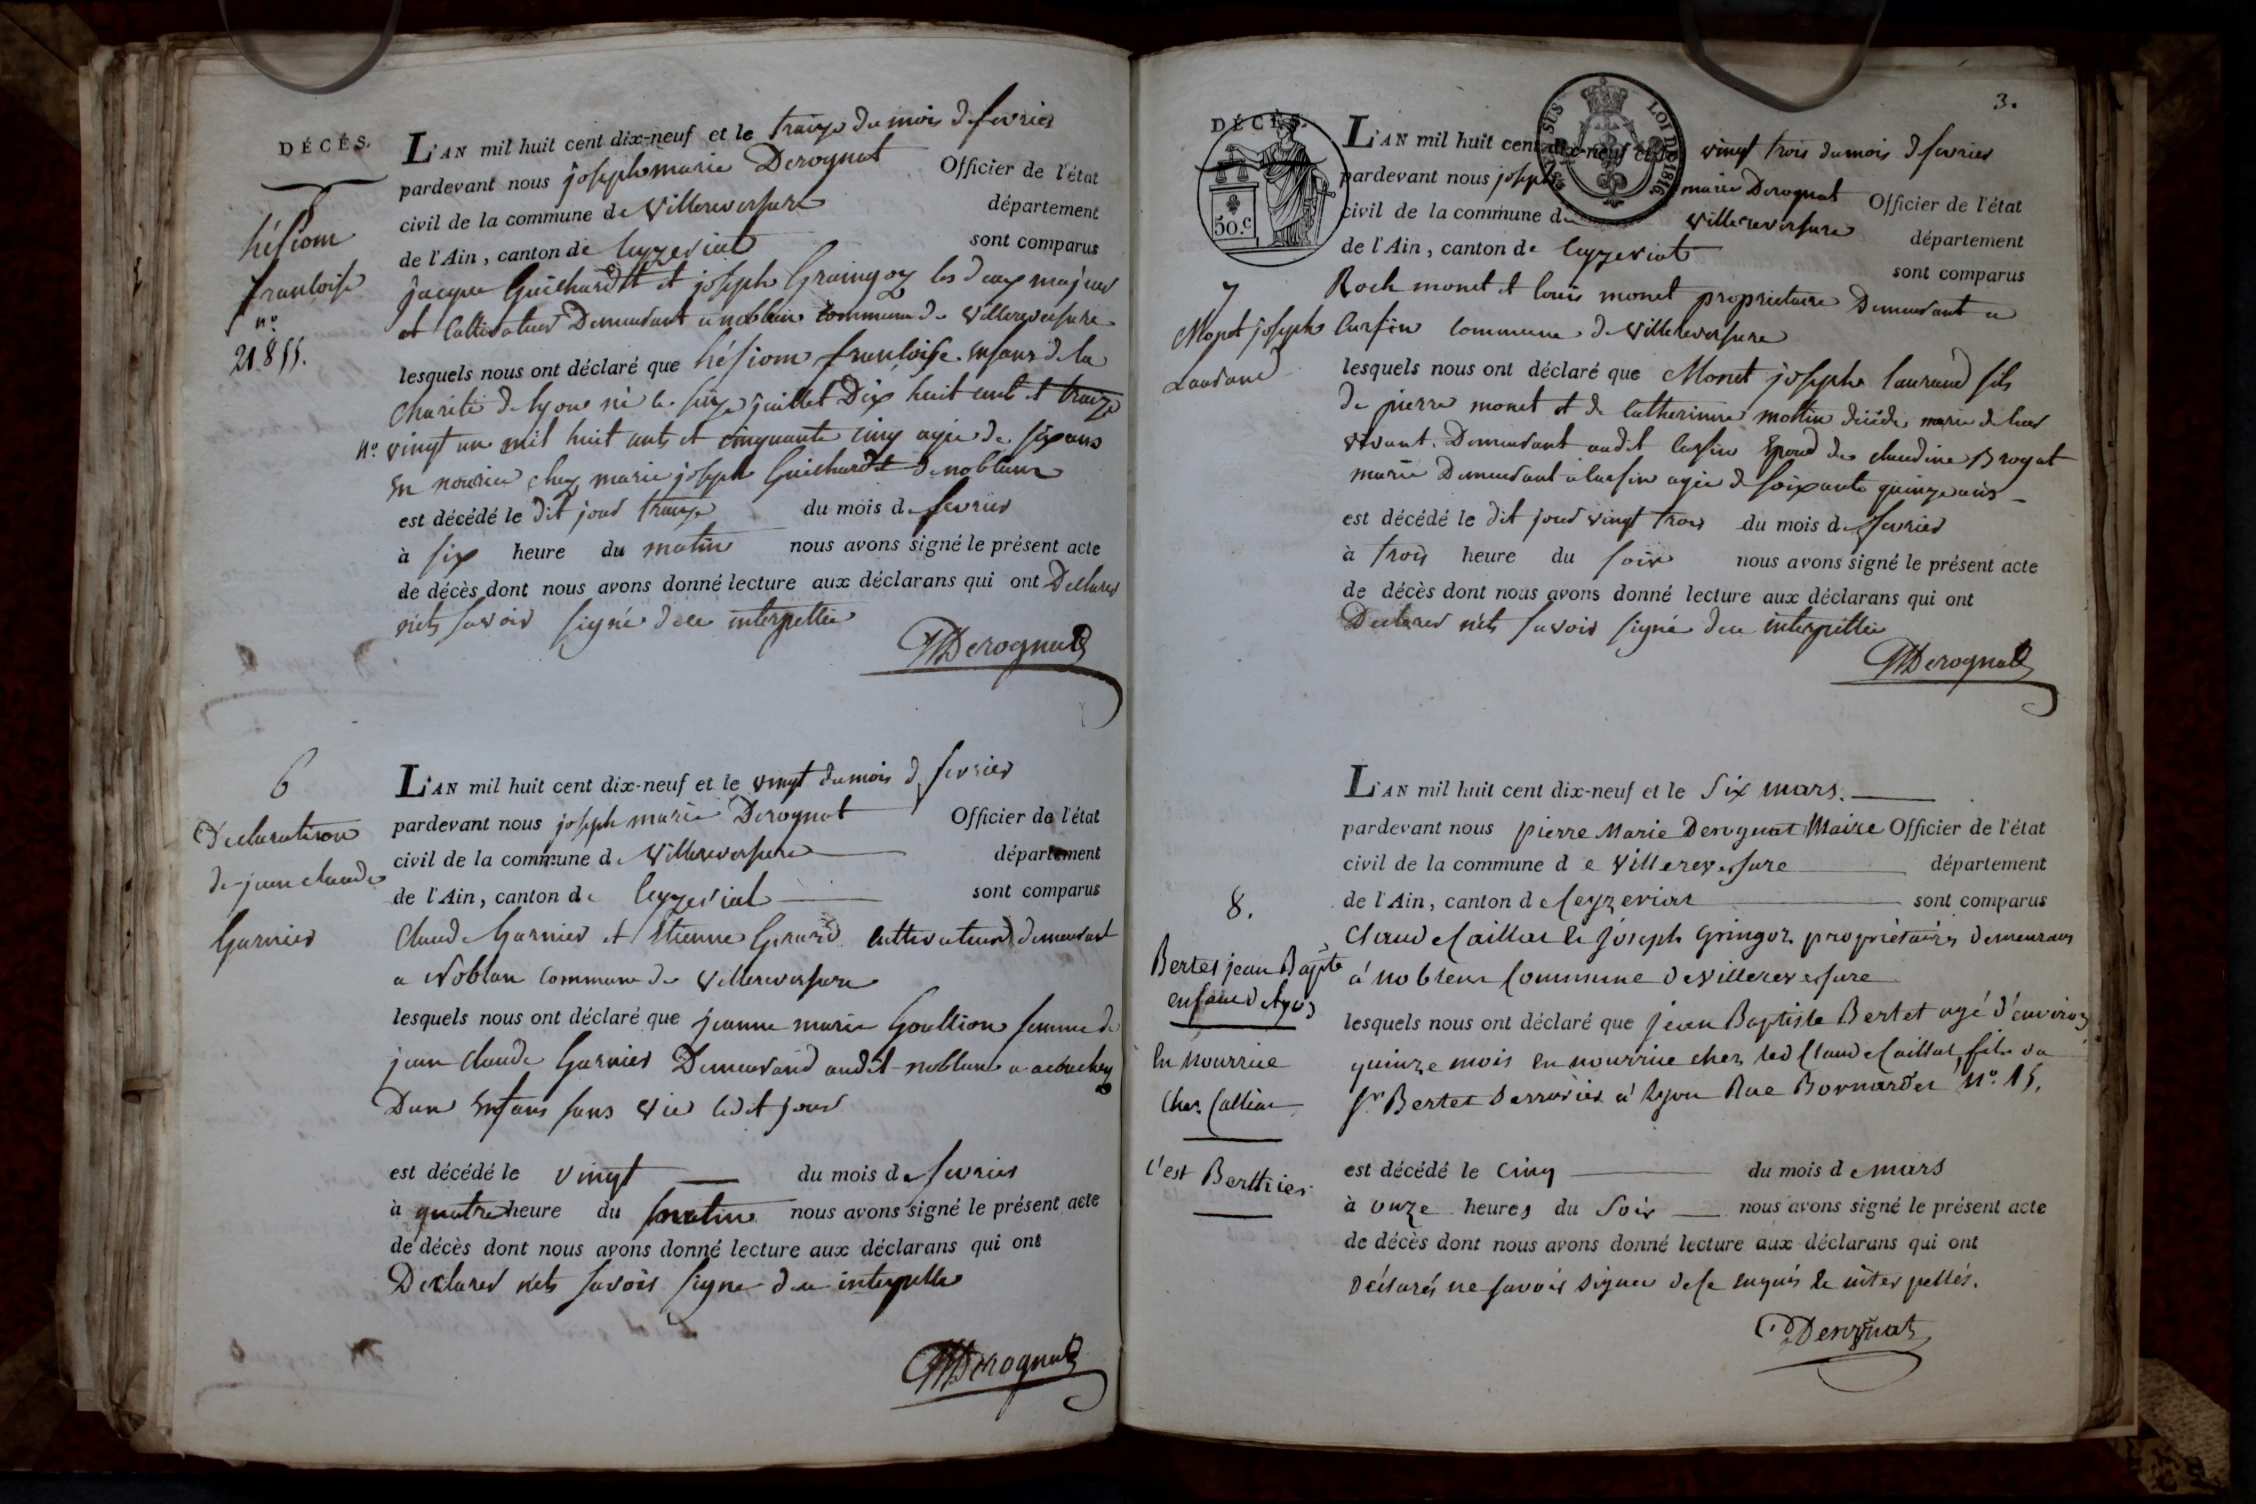 DÉCÈS.
L'AN mil huit cent dix-neuf et le treize du mois de fevrier
pardevant nous joseph marie Derognat Officier de l'état
civil de la commune de Villereversure département
de l'Ain, canton de Ceyzeriat sont comparus
hésiom
francloise
n°
21855.
jacque Guichardt et joseph Graingoz les deux majeur
et Cultivateur Demeurant a noblan commune de Villereversure
lesquels nous ont déclaré que hésiom francloise. Enfant de la
Charité de lyon né le seize juillet Dix huit cent et treize
n° vingt un mil huit cents et cinquante cinq agée de six ans
en nourice chez marie joseph Guichardt de noblans
est décédé le dit jour treize du mois de fevrier
à six heure du matin nous avons signé le présent acte
de décès dont nous avons donné lecture aux déclarans qui ont Declarer
nets savoir signé de ce interpellée
JMDerognat
6
Declaration
de jean claude
Garnier
L'AN mil huit cent dix-neuf et le vingt du mois de fevrier
pardevant nous joseph marie Derognat Officier de l'état
civil de la commune de Villereversure département
de l'Ain, canton de Ceyzeriat sont comparus
Claude Garnier et Etienne Girard Cultivateur demeurant
a Noblan commune de Villereversure
lesquels nous ont déclaré que jeanne marie Goullion femme de
jean claude Garnier Demeurand audit noblans a acouchez
Dun Enfans sans vie ledit jour
est décédé le vingt du mois de fevrier
à quatre heure du matin nous avons signé le présent acte
de décès dont nous avons donné lecture aux déclarans qui ont
Declarer nets savoir signe de ce interpelle
JMDerognat
3.
DÉCÈS.
50.C
SUS
LOI DE 1816
L'AN mil huit cent dix-neuf et le vingt trois du mois de fevrier
pardevant nous joseph marie Derognat Officier de l'état
civil de la commune de Villereversure département
de l'Ain, canton de Ceyzeriat sont comparus
7
Monet joseph
Laurand
Roch monet et louis monet proprietaire Demeurant a
Cursin commune de Villereversure
lesquels nous ont déclaré que Monet joseph laurand fils
de pierre monet et de Catherinne mottin décédé marie de leur
vivant. Demeurant audit Cursin Epoud de claudine Brogat
marie Demeurant a Cursin agée de soixante quinze ans
est décédé le dit jour vingt trois du mois de fevrier
à trois heure du soir nous avons signé le présent acte
de décès dont nous avons donné lecture aux déclarans qui ont
Declarer nets savoir signé de ce interpellée
JMDerognat
8.
Bertet jean Bapte
enfant de Lyon
En Nourrice
Chez Calliat
C'est Berthier
L'AN mil huit cent dix-neuf et le Six mars.
pardevant nous pierre Marie Derognat Maire Officier de l'état
civil de la commune de Villereversure département
de l'Ain, canton de Ceyzeriat sont comparus
Claude Caillat & Joseph Gringoz propriétaires demeurans
à noblens Commune de villereversure
lesquels nous ont déclaré que jean Baptiste Bertet agé d'environ
quinze mois en nourrice chez led Claude Caillat, fils du
Sr Bertet Serrurier à Lyon Rue Bonnardet N° 15.
est décédé le Cinq du mois de mars
à onze heures du Soir nous avons signé le présent acte
de décès dont nous avons donné lecture aux déclarans qui ont
déclarés ne savoir signer de ce enquis & interpellés.
PDerognat